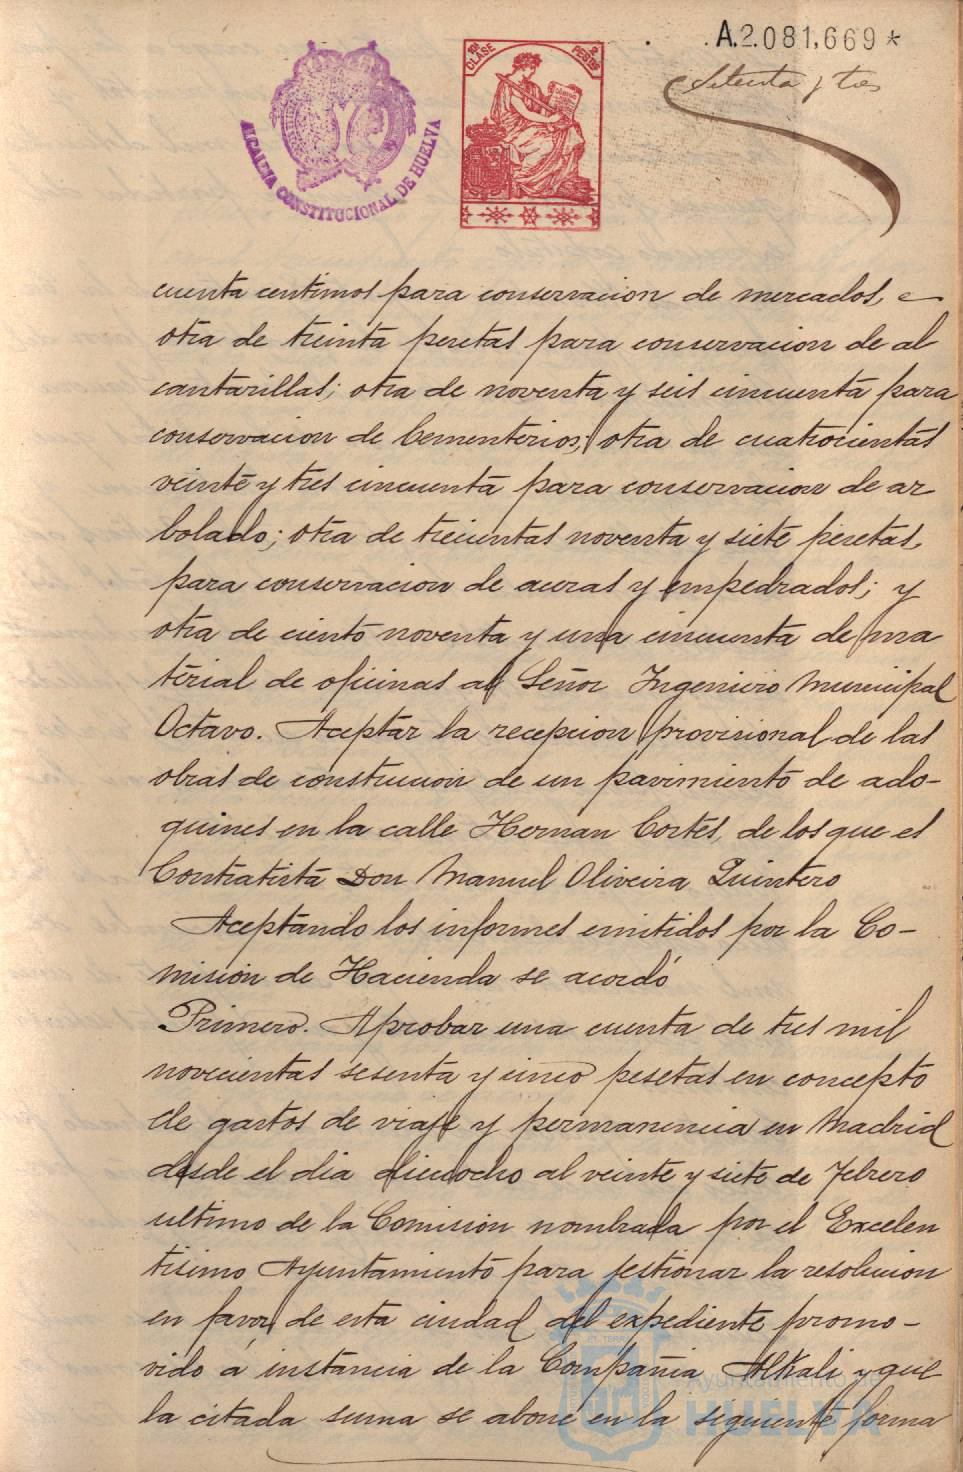 A.2.081,669*
Setenta y tres
10ª CLASE
2 PESETAS
ALCALDIA CONSTITUCIONAL DE HUELVA
cuenta centimos para conservacion de mercados, e
otra de treinta pesetas para conservacion de al
cantarillas; otra de noventa y seis cincuenta para
conservacion de Cementerios; otra de cuatrocientas
veinte y tres cincuenta para conservacion de ar
bolado; otra de trecientas noventa y siete pesetas,
para conservacion de aceras y empedrados; y
otra de ciento noventa y una cincuenta de ma
terial de oficinas al Señor Ingeniero Municipal
Octavo. Aceptar la recepcion provisional de las
obras de construcion de un pavimiento de ado-
quines en la calle Hernan Cortés, de los que es
Contratista Don Manuel Oliveira Quintero
Aceptando los informes emitidos por la Co-
mision de Hacienda se acordó
Primero. Aprobar una cuenta de tres mil
novecientas sesenta y cinco pesetas en concepto
de gastos de viaje y permanencia en Madrid
desde el dia dieciocho al veinte y siete de Febrero
ultimo de la Comision nombrada por el Excelen
tisimo Ayuntamiento para gestionar la resolucion
en favor de esta ciudad del expediente promo-
vido á instancia de la Compañia Alkali y que
la citada suma se abone en la seguiente forma
Ayuntamiento de
HUELVA